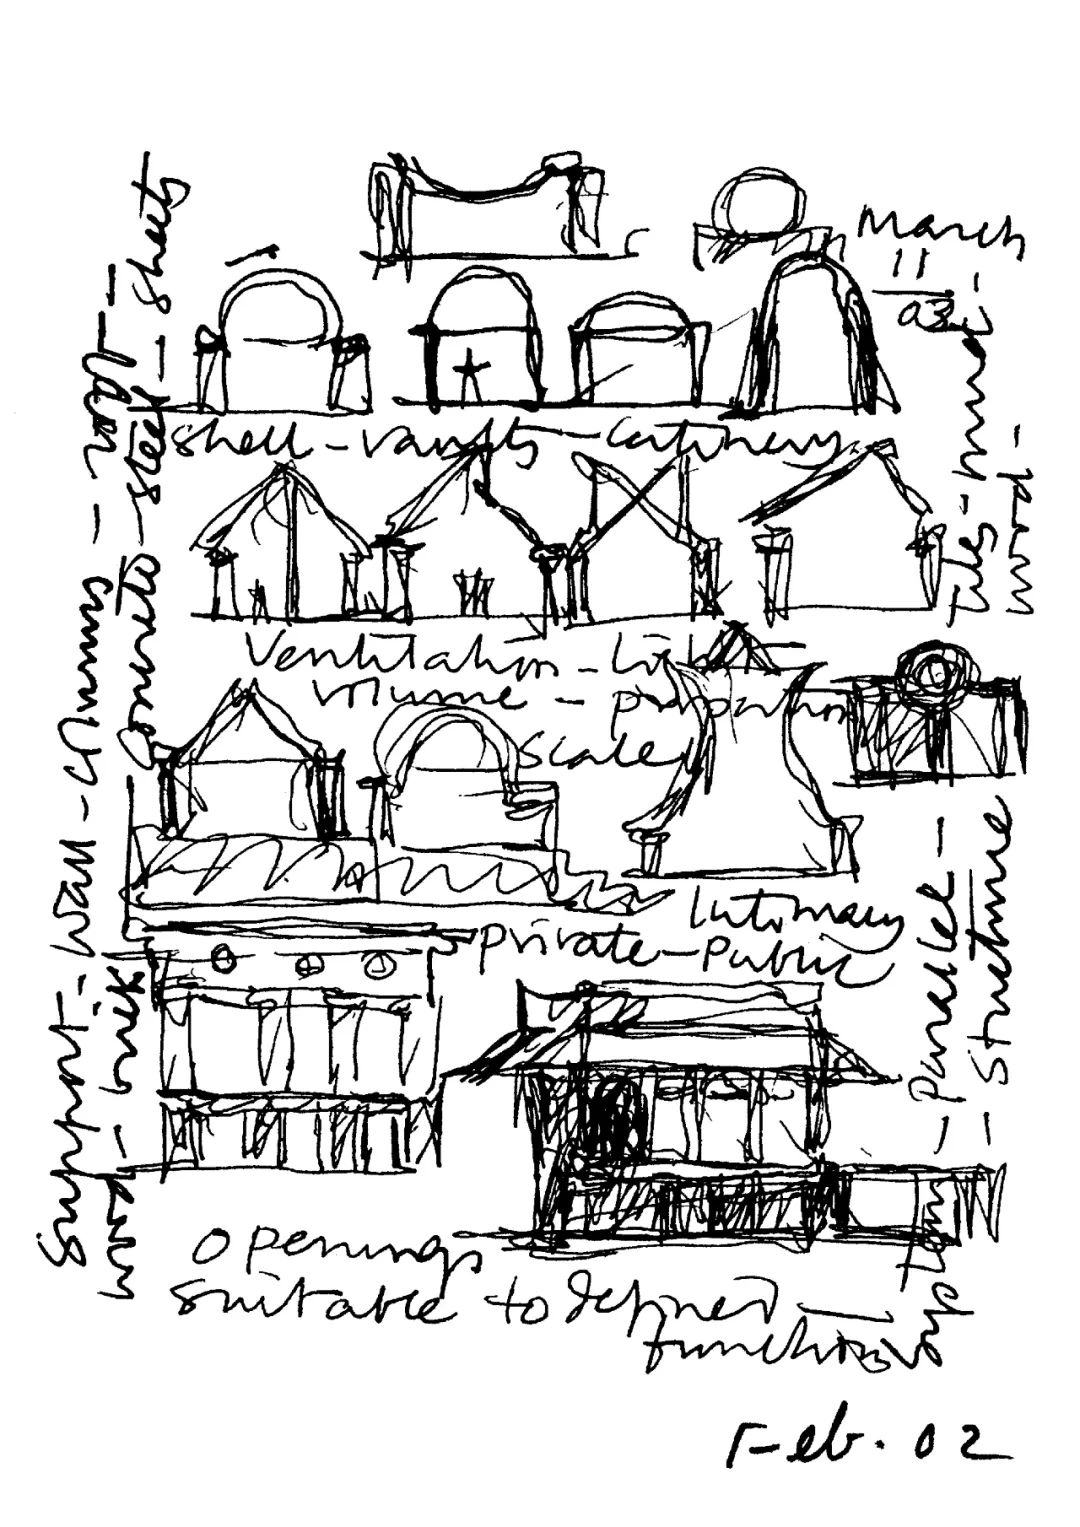 March
11
03
Shell-Vaults-Catinery
Ventilation-light
volume - proportion
Scale
Intimacy
private-Public
Openings
suitable to defined
functions
Feb. 02
Support-wall-columns-roof-
wood-brick-Concrete-steel-sheets
System - Parallel - Tiles-mud-
- structure
wood-